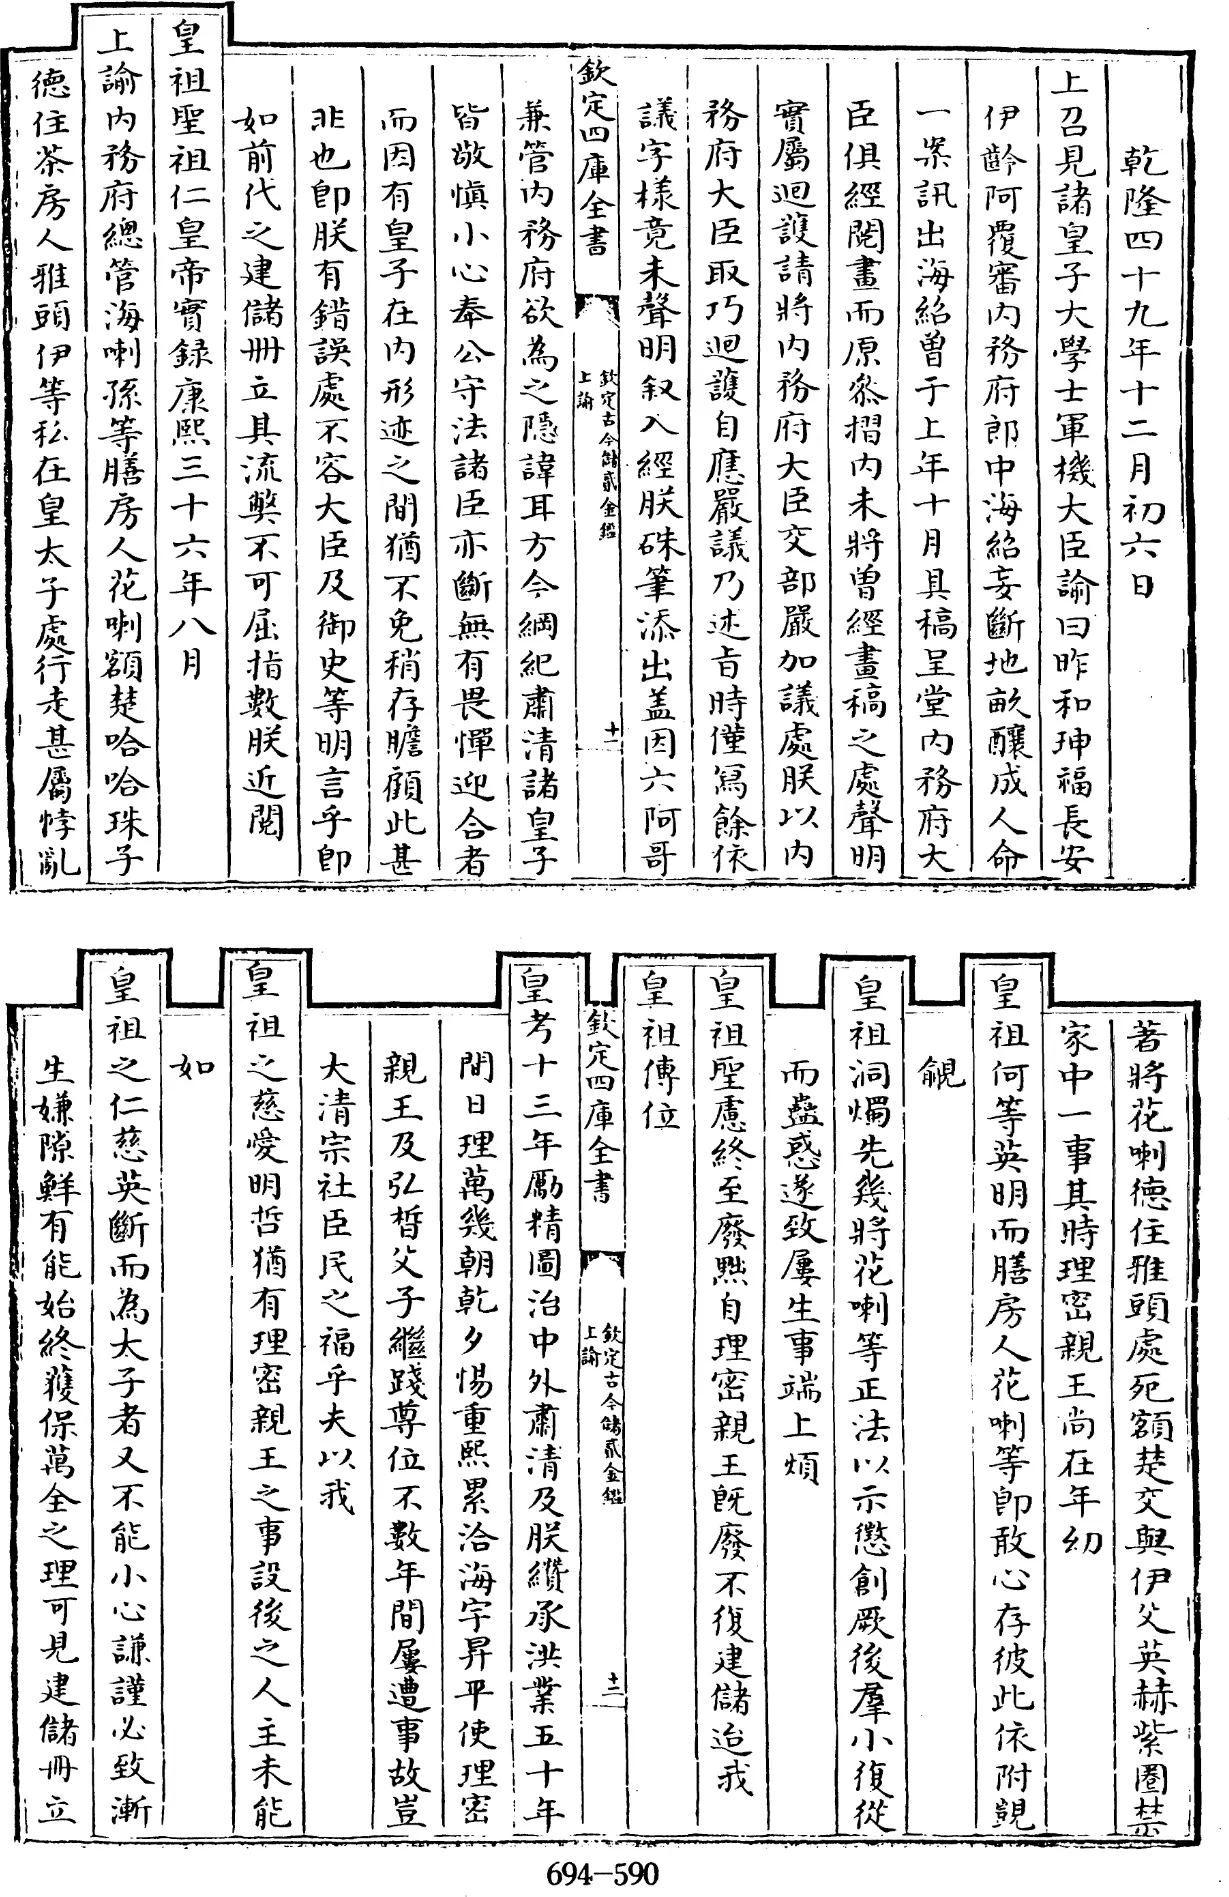 乾隆四十九年十二月初六日
上召見諸皇子大學士軍機大臣諭曰昨和珅福長安
伊齡阿覆審內務府郎中海紹妄斷地畝釀成人命
一案訊出海紹曾于上年十月具稿呈堂內務府大
臣俱經閱畫而原叅摺內未將曾經畫稿之處聲明
實屬迴護請將內務府大臣交部嚴加議處朕以內
務府大臣取巧迴護自應嚴議乃述㫖時僅寫餘依
議字様竟未聲明叙入經朕硃筆添出盖因六阿哥
欽定四庫全書
欽定古今儲貳金鑑
上諭
十一
兼管內務府欲為之隱諱耳方今綱紀肅清諸皇子
皆敬慎小心奉公守法諸臣亦斷無有畏憚迎合者
而因有皇子在內形迹之間猶不免稍存瞻顧此甚
非也卽朕有錯誤處不容大臣及御史等明言乎卽
如前代之建儲冊立其流獘不可屈指數朕近閱
皇祖聖祖仁皇帝實録康熙三十六年八月
上諭內務府總管海喇孫等膳房人花喇額楚哈哈珠子
德住茶房人雅頭伊等私在皇太子處行走甚屬悖亂
著將花喇德住雅頭處死額楚交與伊父英赫紫圈禁
家中一事其時理密親王尚在年幼
皇祖何等英明而膳房人花喇等卽敢心存彼此依附覬
覦
皇祖洞燭先幾將花喇等正法以示懲創厥後羣小復從
而蠱惑遂致屢生事端上煩
皇祖聖慮終至廢黜自理密親王旣廢不復建儲迨我
皇祖傳位
欽定四庫全書
欽定古今儲貳金鑑
上諭
十二
皇考十三年勵精圖治中外肅清及朕纘承洪業五十年
間日理萬幾朝乾夕惕重熙累洽海宇昇平使理密
親王及弘晳父子繼踐尊位不數年間屢遭事故豈
大清宗社臣民之福乎夫以我
皇祖之慈愛明哲猶有理密親王之事設後之人主未能
如
皇祖之仁慈英斷而為太子者又不能小心謙謹必致漸
生嫌隙鮮有能始終獲保萬全之理可見建儲冊立
694-590